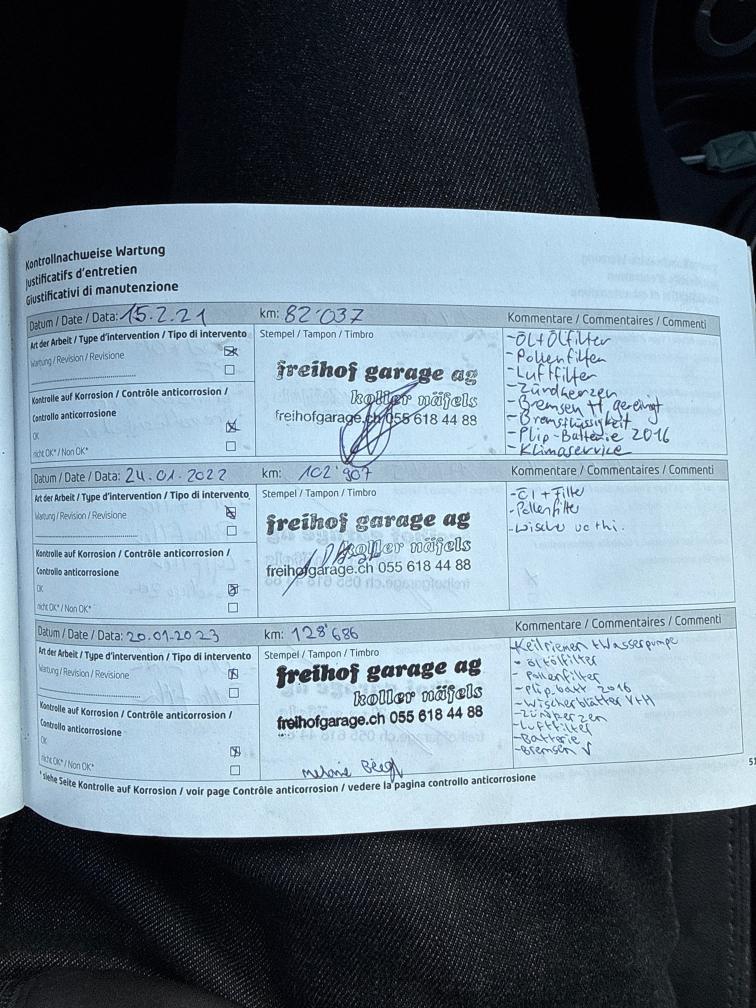 Kontrollnachweise Wartung
Justificatifs d'entretien
Giustificativi di manutenzione
Datum / Date / Data: 15.2.21
km: 82'037
Kommentare / Commentaires / Commenti
Art der Arbeit / Type d'intervention / Tipo di intervento
Wartung / Revision / Revisione
Kontrolle auf Korrosion / Contrôle anticorrosion /
Controllo anticorrosione
OK
nicht OK* / Non OK*
Stempel / Tampon / Timbro
freihof garage ag
koller näfels
freihofgarage.ch 055 618 44 88
-Öl+Ölfilter
-Pollenfilter
-Luftfilter
-Zündkerzen
-Bremsen H. gereinigt
-Bremsflüssigkeit
-Plip-Batterie 2016
-Klimaservice
Datum / Date / Data: 24.01.2022
km: 102'907
Kommentare / Commentaires / Commenti
Art der Arbeit / Type d'intervention / Tipo di intervento
Wartung / Revision / Revisione
Kontrolle auf Korrosion / Contrôle anticorrosion /
Controllo anticorrosione
OK
nicht OK* / Non OK*
Stempel / Tampon / Timbro
freihof garage ag
koller näfels
freihofgarage.ch 055 618 44 88
-Öl + Filter
-Pollenfilter
-Wischer
Datum / Date / Data: 20.01.2023
km: 128'686
Kommentare / Commentaires / Commenti
Art der Arbeit / Type d'intervention / Tipo di intervento
Wartung / Revision / Revisione
Kontrolle auf Korrosion / Contrôle anticorrosion /
Controllo anticorrosione
OK
nicht OK* / Non OK*
Stempel / Tampon / Timbro
freihof garage ag
koller näfels
freihofgarage.ch 055 618 44 88
-Keilriemen + Wasserpumpe
- Öl+Ölfilter
- Pollenfilter
-Plip.batt 2016
-Wischerblätter V+H
-Zündkerzen
-Luftfilter
-Batterie
-Bremsen V
* siehe Seite Kontrolle auf Korrosion / voir page Contrôle anticorrosion / vedere la pagina controllo anticorrosione